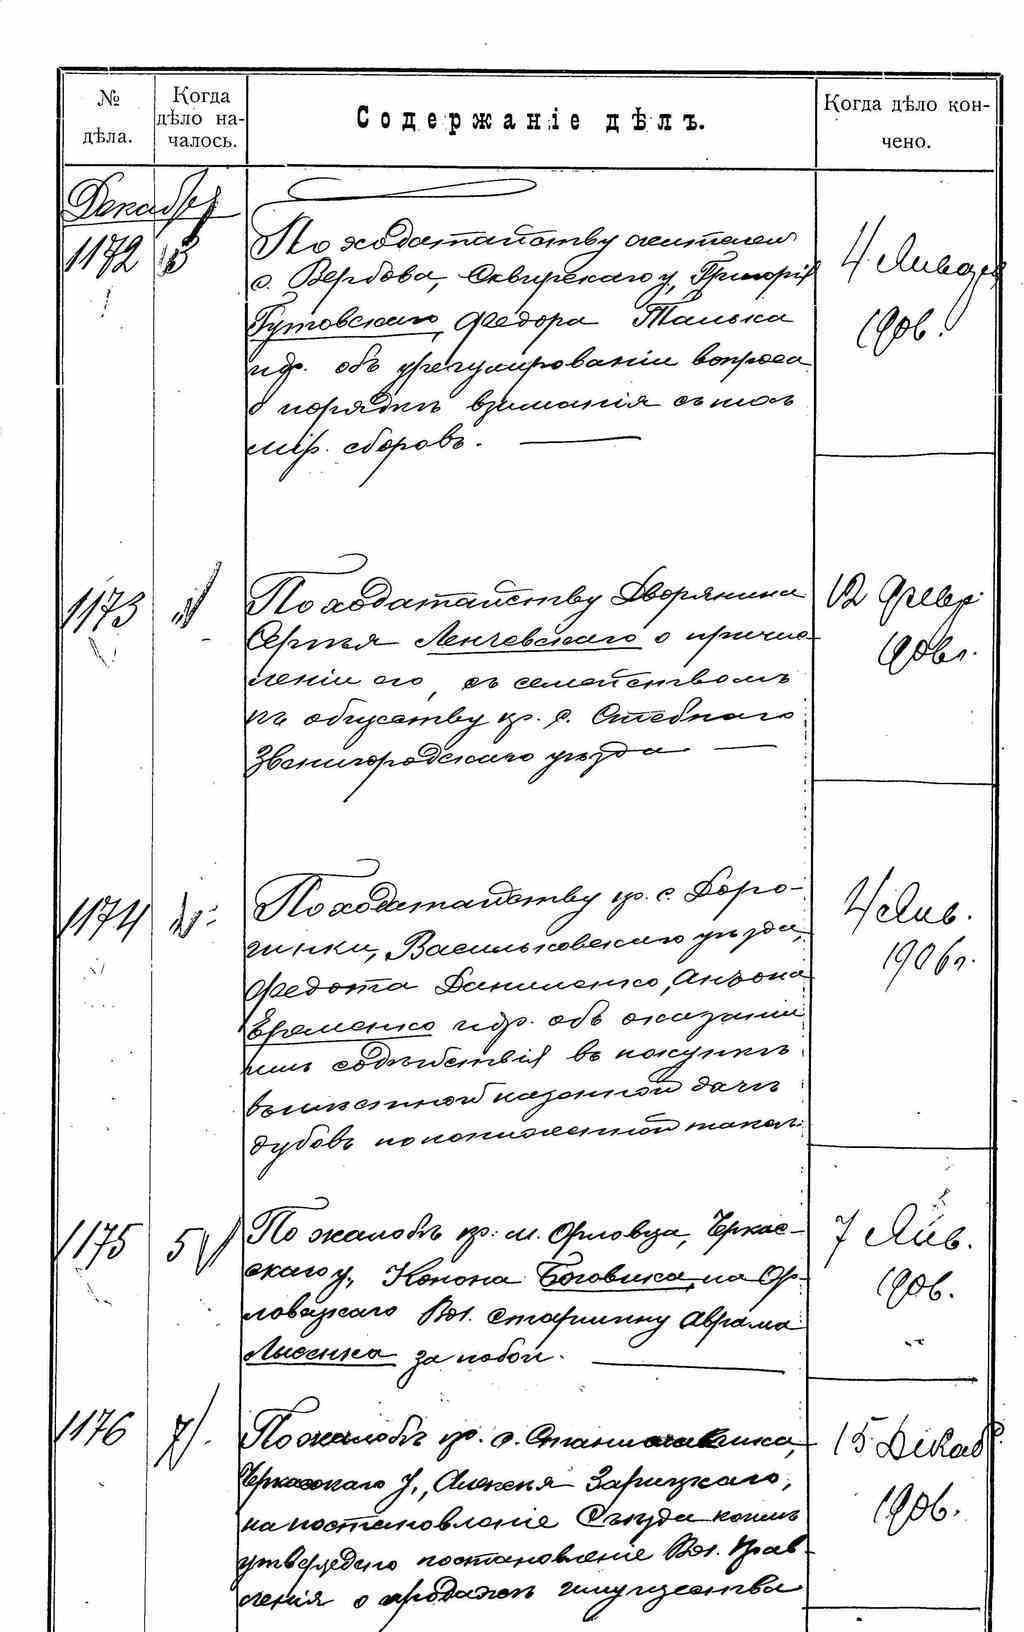 № дѣла.
Когда дѣло на-
чалось.
Содержаніе дѣлъ.
Когда дѣло кон-
чено.
Декабря
1172 3
По ходатайству жителей
с. Вербова, Сквирскаго у., Григорія
Гутовскаго, Федора Талька
и др. объ урегулированіи вопроса
о порядкѣ взиманія съ нихъ
мір. сборовъ.
4 Января
1906.
1173
По ходатайству Дворянина
Сергѣя Ленчевскаго о причис
леніи его, съ семействомъ
къ обществу кр. с. Стебнаго
Звенигородскаго уѣзда
12 Февр.
1906 г.
1174
По ходатайству кр. с. Доро-
гинки, Васильковскаго уѣзда,
Федота Даниленко, Антона
Еременко и др. объ оказаніи
имъ содѣйствія въ покупкѣ
въ казенной дачѣ
дубовъ по пониженной таксѣ
4 Янв.
1906 г.
1175 5
По жалобѣ кр. м. Орловца, Черкас-
скаго у., Конона Боговика, на Ор-
ловецкаго Вол. старшину Аврама
Лысенка за побои.
7 Янв.
1906.
1176 7
По жалобѣ кр. с.
Черкасскаго у., Алексѣя Зарицкаго,
на постановленіе Съѣзда коимъ
утверждено постановленіе Вол. Прав-
ленія о продажѣ имущества
15 Декаб.
1906.